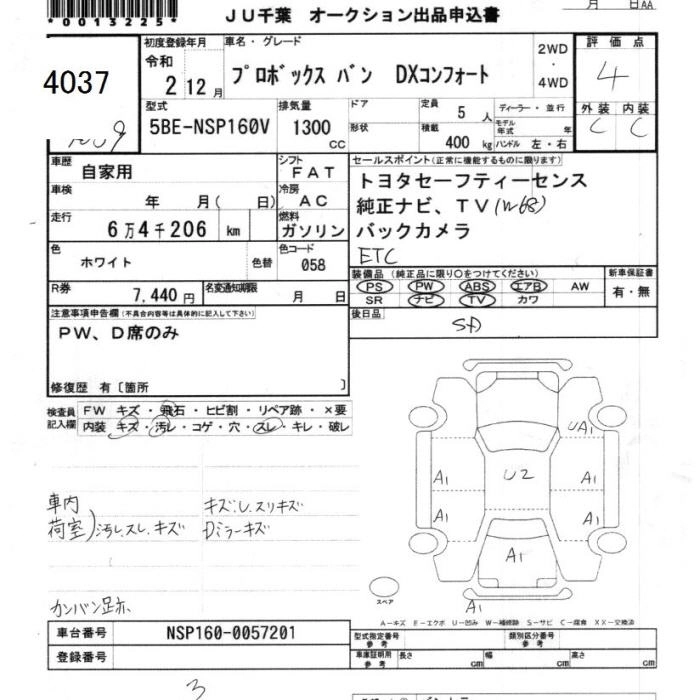 *0013225*
JU千葉 オークション出品申込書
月 日AA
4037
初度登録年月
令和
2 12月
車名・グレード
プロボックス バン DXコンフォート
2WD
・
4WD
評価点
4
型式
5BE-NSP160V
排気量
1300
cc
ドア
形状
定員
5人
積載
400kg
ディーラー・並行
モデル年式 年
ハンドル 左・右
外装 内装
C C
車歴
自家用
シフト
FAT
車検
年 月( 日)
冷房
AC
走行
6万4千206 km
燃料
ガソリン
色
ホワイト
色替
色コード
058
R券
7,440円
名変通知期限
月 日
セールスポイント(正常に機能するものに限ります)
トヨタセーフティーセンス
純正ナビ、TV(W68)
バックカメラ
ETC
装備品(純正品に限り○をつけてください)
PS PW ABS エアB AW
SR ナビ TV カワ
新車保証書
有・無
後日品
SD
注意事項申告欄(不具合内容等は具体的に記入して下さい)
PW、D席のみ
修復歴 有〔箇所 〕
検査員記入欄
FW キズ・飛石・ヒビ割・リペア跡・×要
内装 キズ・汚レ・コゲ・穴・スレ・キレ・破レ
車内
荷室)汚レ、スレ、キズ
キズ、U、スリキズ
Dミラーキズ
カンバン足跡
UA1
A1
U2
A1
A1
A1
A1
A1
スペア
A-キズ E-エクボ U-凹み W-補修跡 S-サビ C-腐食 XX-交換済
車台番号
NSP160-0057201
登録番号
型式指定番号
参考
類別区分番号
参考
車庫証明用
参考
長さ cm
幅 cm
高さ cm
3